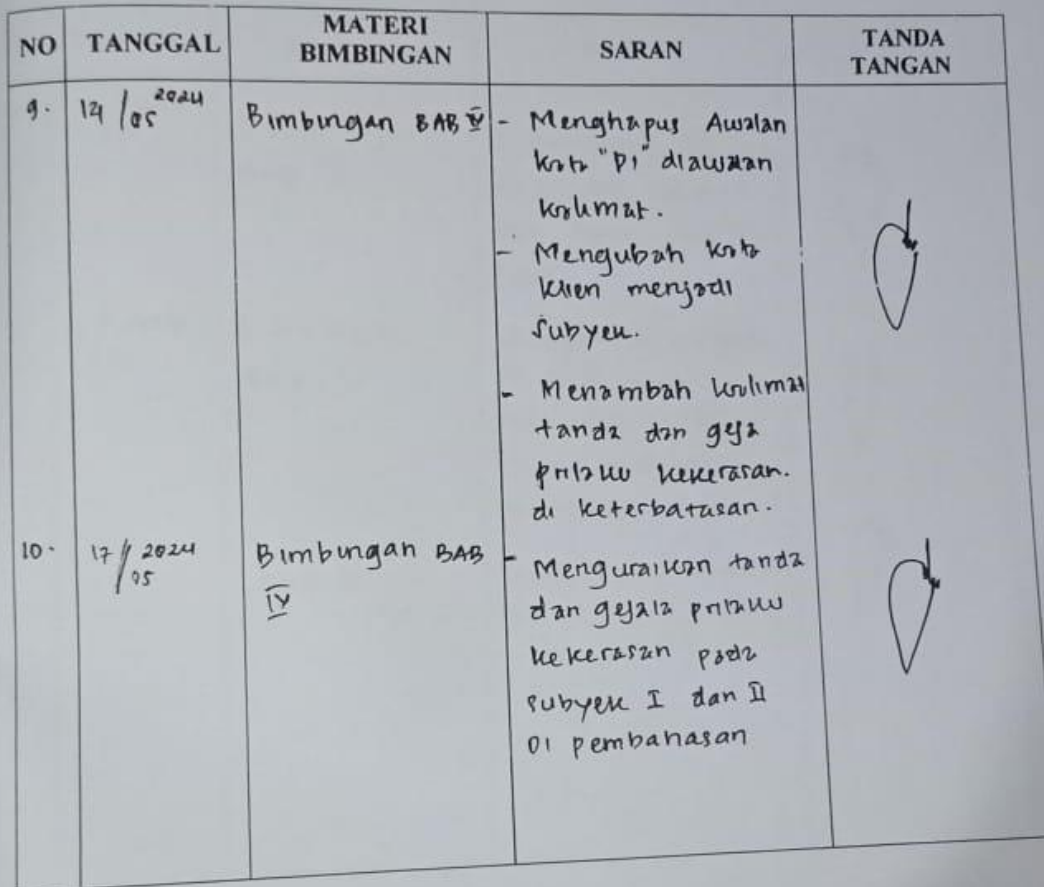 NO TANGGAL MATERI BIMBINGAN SARAN TANDA TANGAN
9. 14/05 2024 Bimbingan BAB IV - Menghapus Awalan
kata "Di" diawalan
kalimat.
- Mengubah kata
klien menjadi
Subyek.
- Menambah kalimat
tanda dan geja
prilaku kekerasan.
di keterbatasan.
10. 17/05 2024 Bimbingan BAB IV - Menguraikan tanda
dan gejala prilaku
kekerasan pada
subyek I dan II
Di pembahasan